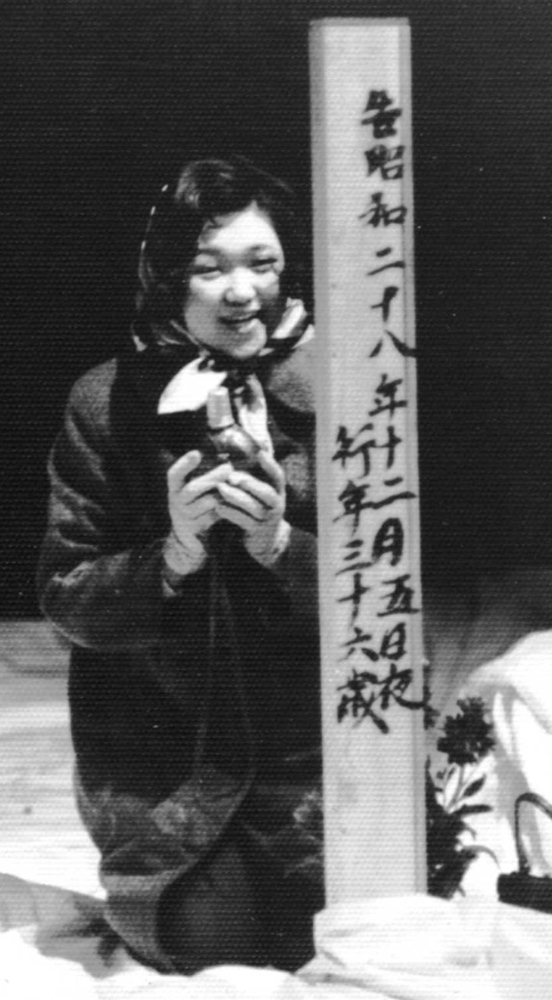 昔昭和二十八年十二月五日夜
行年三十六歳